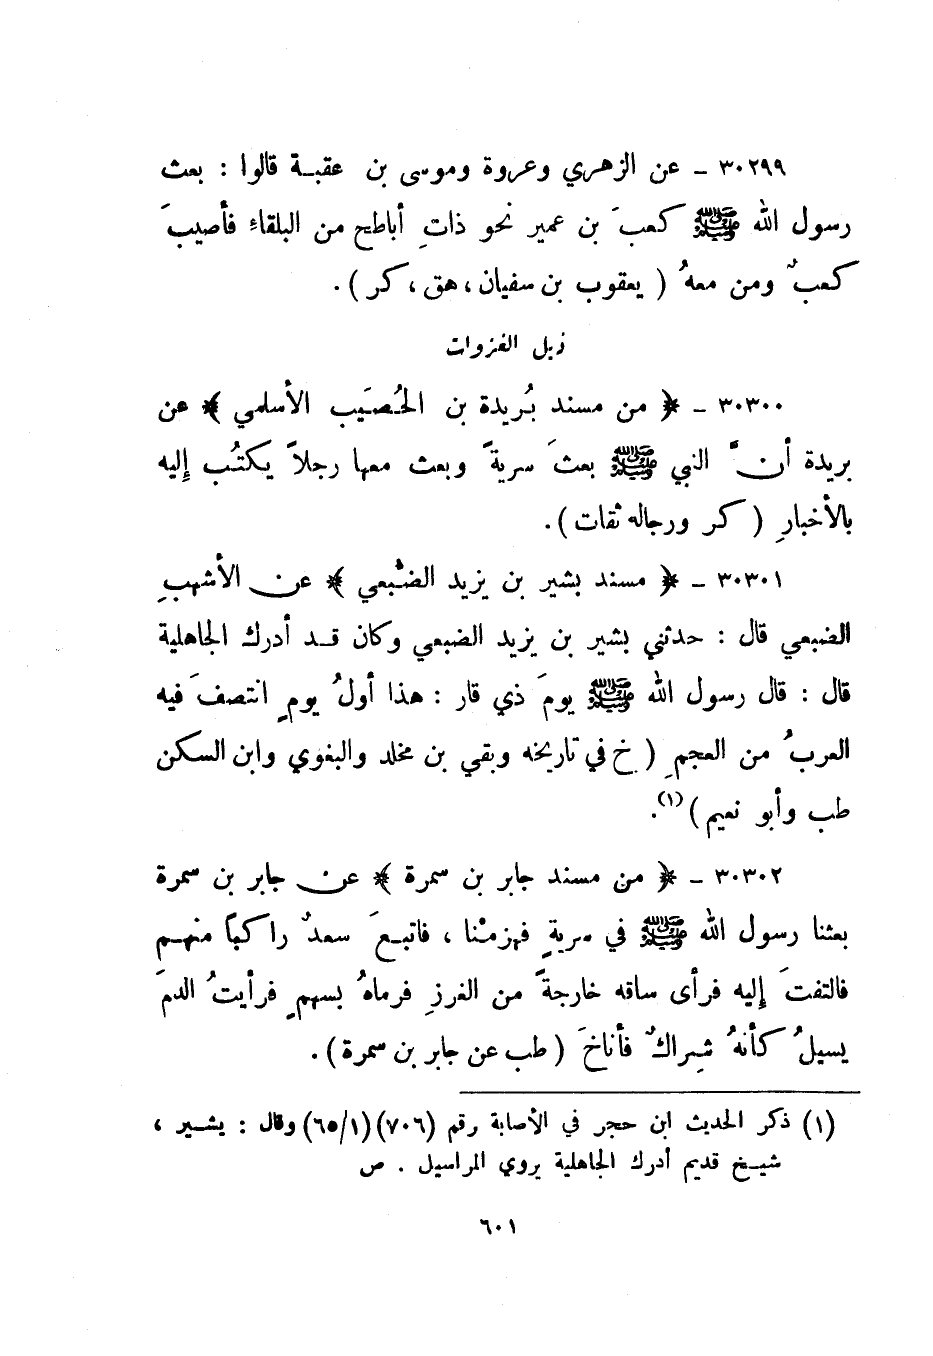 ٣٠٢٩٩ ـ عن الزهري وعروة وموسى بن عقبة قالوا : بعث
رسول الله ﷺ كعبَ بن عمير نحو ذاتِ أباطح من البلقاءِ فأصيبَ
كعبٌ ومن معهُ ( يعقوب بن سفيان ، هق ، كر ) .
ذيل الغزوات
٣٠٣٠٠ ـ ﴿ من مسند بُريدة بن الحُصيَب الأسلمي ﴾ عن
بريدة أنَّ النبي ﷺ بعثَ سريةً وبعث معها رجلاً يكتُب إليه
بالأخبارِ ( كر ورجاله ثقات ) .
٣٠٣٠١ ـ ﴿ مسند بشير بن يزيد الضُبعي ﴾ عن الأشهبِ
الضبعي قال : حدثني بشير بن يزيد الضبعي وكان قد أدرك الجاهلية
قال : قال رسول الله ﷺ يومَ ذي قار : هذا أولُ يومٍ انتصفَ فيه
العربُ من العجمِ ( خ في تاريخه وبقي بن مخلد والبغوي وابن السكن
طب وأبو نعيم )(١).
٣٠٣٠٢ ـ ﴿ من مسند جابر بن سمرة ﴾ عن جابر بن سمرة
بعثنا رسول الله ﷺ في سريةٍ فهزمْنا ، فاتبعَ سعدٌ راكباً منهم
فالتفتَ إليه فرأى ساقه خارجةً من الغرزِ فرماهُ بسهمٍ فرأيتُ الدمَ
يسيلُ كأنهُ شِراكٌ فأناخَ ( طب عن جابر بن سمرة ) .
(١) ذكر الحديث ابن حجر في الأصابة رقم (٧٠٦) (٦٥/١) وقال : بشير ،
شيخ قديم أدرك الجاهلية يروي المراسيل . ص
٦٠١